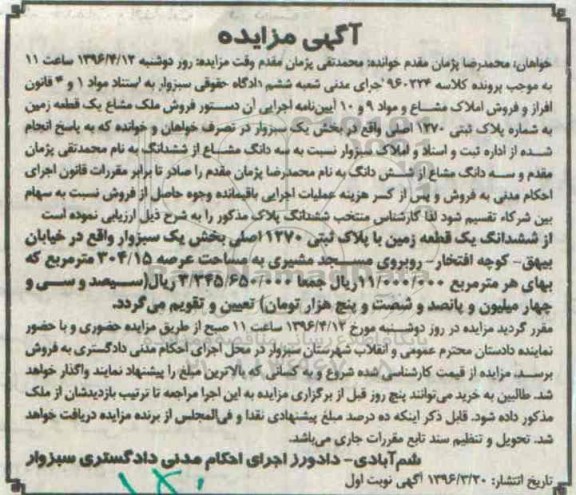 آگهی مزایده
خواهان: محمدرضا پژمان مقدم خوانده: محمدتقی پژمان مقدم وقت مزایده: روز دوشنبه ۱۳۹۶/۴/۱۲ ساعت ۱۱
به موجب پرونده کلاسه ۹۶۰۳۲۴ اجرای مدنی شعبه ششم دادگاه حقوقی سبزوار به استناد مواد ۱ و ۴ قانون
افراز و فروش املاک مشاع و مواد ۹ و ۱۰ آیین‌نامه اجرایی آن دستور فروش ملک مشاع یک قطعه زمین
به شماره پلاک ثبتی ۱۳۷۰ اصلی واقع در بخش یک سبزوار در تصرف خواهان و خوانده که به پاسخ انجام
شده از اداره ثبت و اسناد و املاک سبزوار نسبت به سه دانگ مشاع از ششدانگ به نام محمدتقی پژمان
مقدم و سه دانگ مشاع از شش دانگ به نام محمدرضا پژمان مقدم را صادر تا برابر مقررات قانون اجرای
احکام مدنی به فروش و پس از کسر هزینه عملیات اجرایی باقیمانده وجوه حاصل از فروش نسبت به سهام
بین شرکاء تقسیم شود لذا کارشناس منتخب ششدانگ پلاک مذکور را به شرح ذیل ارزیابی نموده است
از ششدانگ یک قطعه زمین با پلاک ثبتی ۱۳۷۰ اصلی بخش یک سبزوار واقع در خیابان
بیهق- کوچه افتخار- روبروی مسجد مشیری به مساحت عرصه ۳۰۴/۱۵ مترمربع که
بهای هر مترمربع ۱۱/۰۰۰/۰۰۰ریال جمعا ۳/۳۴۵/۶۵۰/۰۰۰ ریال(سیصد و سی و
چهار میلیون و پانصد و شصت و پنج هزار تومان) تعیین و تقویم می‌گردد.
مقرر گردید مزایده در روز دوشنبه مورخ ۱۳۹۶/۴/۱۲ ساعت ۱۱ صبح از طریق مزایده حضوری و با حضور
نماینده دادستان محترم عمومی و انقلاب شهرستان سبزوار در محل اجرای احکام مدنی دادگستری به فروش
برسد. مزایده از قیمت کارشناسی شده شروع و به کسانی که بالاترین مبلغ را پیشنهاد نمایند واگذار خواهد
شد. طالبین به خرید می‌توانند پنج روز قبل از برگزاری مزایده به این اجرا مراجعه تا ترتیب بازدیدشان از ملک
مذکور داده شود. قابل ذکر اینکه ده درصد مبلغ پیشنهادی نقدا و فی‌المجلس از برنده مزایده دریافت خواهد
شد. تحویل و تنظیم سند تابع مقررات جاری می‌باشد.
شم‌آبادی- دادورز اجرای احکام مدنی دادگستری سبزوار
تاریخ انتشار: ۱۳۹۶/۳/۲۰ آگهی نوبت اول